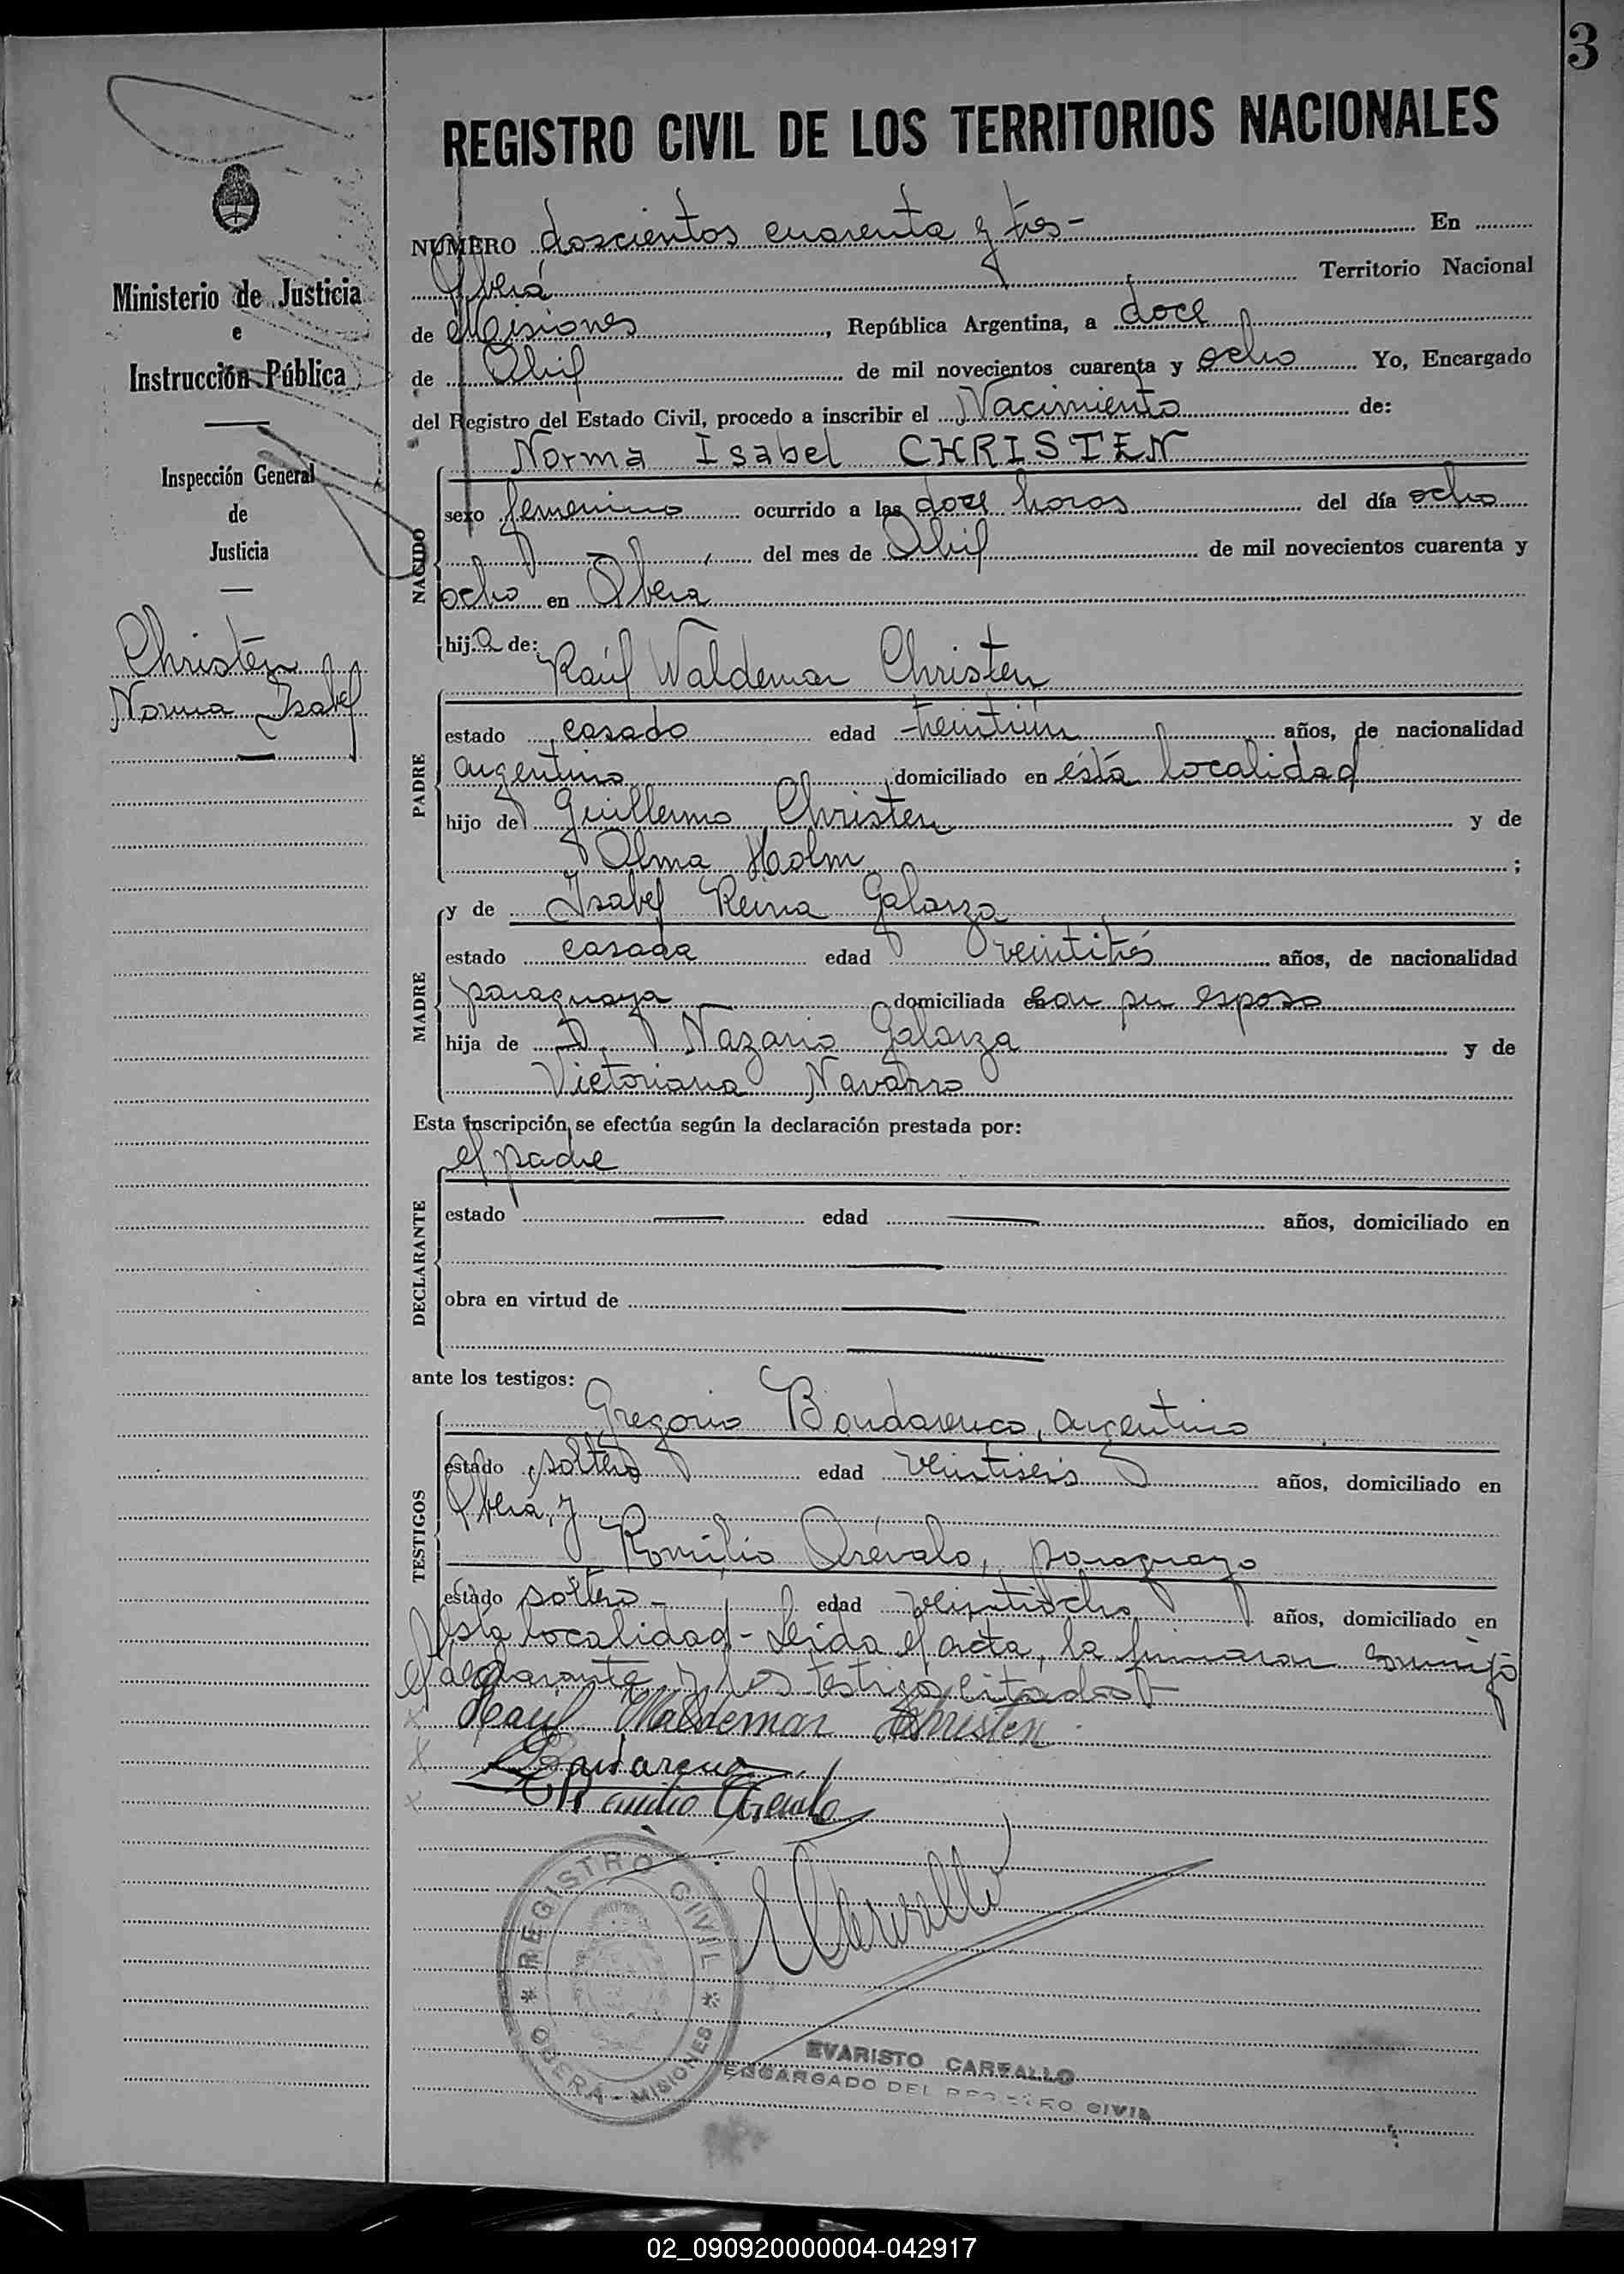 3
REGISTRO CIVIL DE LOS TERRITORIOS NACIONALES
Ministerio de Justicia
e
Instrucción Pública
Inspección General
de
Justicia
Christen
Norma Isabel
NUMERO doscientos cuarenta y tres - En
Oberá Territorio Nacional
de Misiones, República Argentina, a doce
de Abril de mil novecientos cuarenta y ocho Yo, Encargado
del Registro del Estado Civil, procedo a inscribir el Nacimiento de:
Norma Isabel CHRISTEN
NACIDO
sexo femenino ocurrido a las doce horas del día ocho
del mes de Abril de mil novecientos cuarenta y
ocho en Oberá
hija de:
Raúl Waldemar Christen
PADRE
estado casado edad treintiún años, de nacionalidad
argentino domiciliado en ésta localidad
hijo de Guillermo Christen y de
Alma Holm ;
MADRE
y de Isabel Reina Galarza
estado casada edad veintitrés años, de nacionalidad
paraguaya domiciliada con su esposo
hija de D. Nazario Galarza y de
Victoriana Navarro
Esta inscripción se efectúa según la declaración prestada por:
el padre
DECLARANTE
estado edad años, domiciliado en
obra en virtud de
ante los testigos:
TESTIGOS
Gregorio Bondarenco, argentino
estado soltero edad veintiseis años, domiciliado en
Oberá, y
Romilio Arévalo, paraguayo
estado soltero - edad veintiocho años, domiciliado en
ésta localidad - Leida el acta, la firmaron conmigo
el declarante y los testigos citados
Raúl Waldemar Christen
Romilio Arevalo
REGISTRO CIVIL
OBERÁ - MISIONES
EVARISTO CARVALLO
ENCARGADO DEL REGISTRO CIVIL
02_090920000004-042917